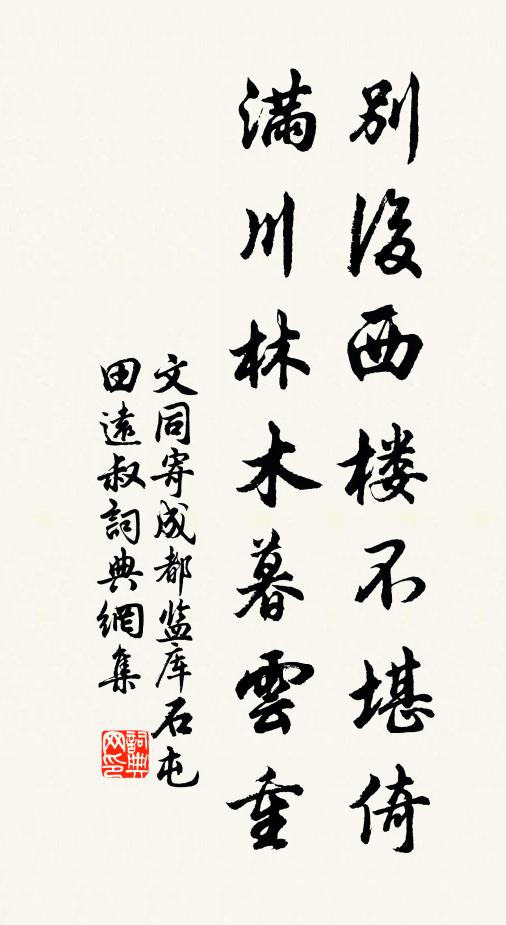 別後西楼不堪倚
滿川林木暮雲重
文同寄成都监库石屯
田遠叔詞典網集
詞典网印